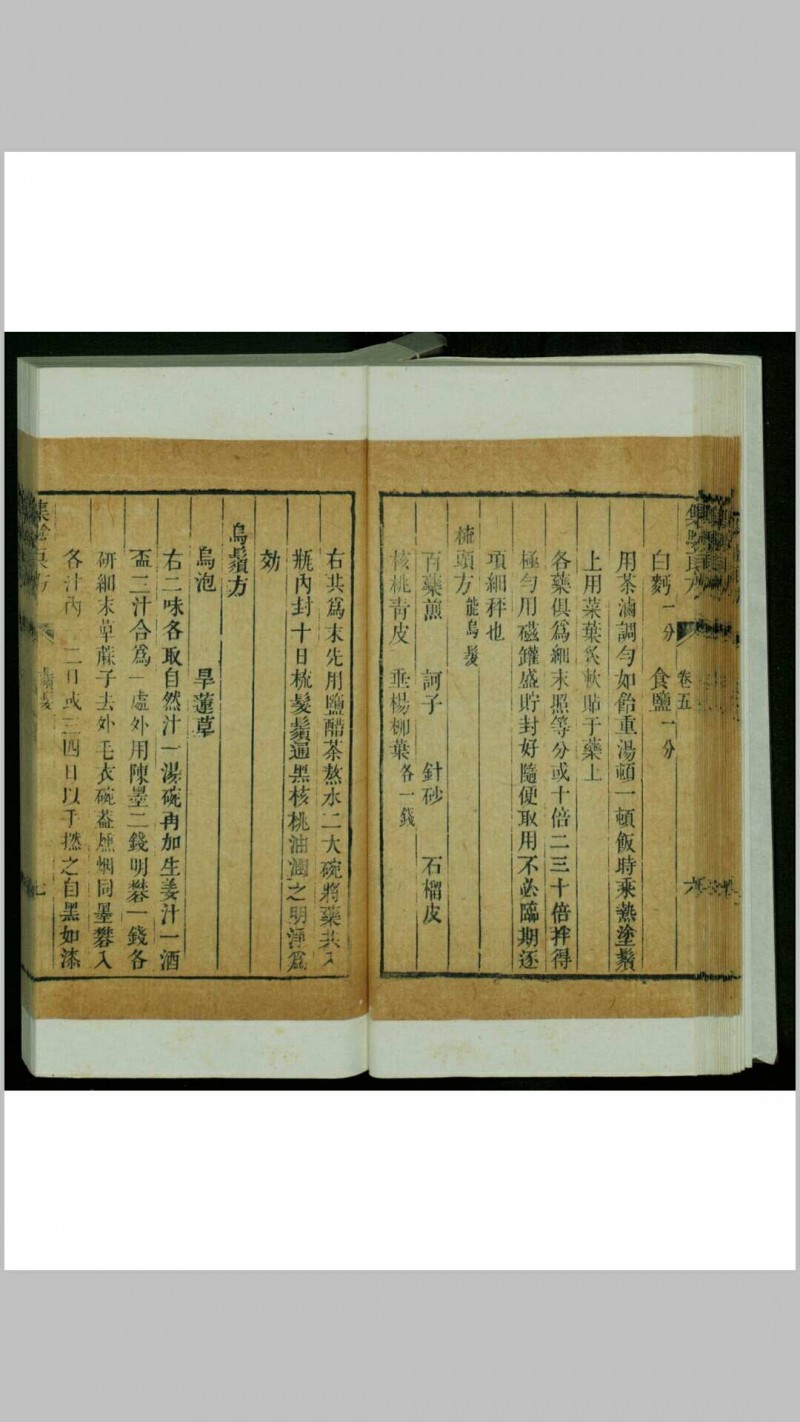 集驗良方
卷五
六
白麪一分 食鹽一分
用茶滷調勻如飴重湯頓一頓飯時乘熱塗鬚
上用菜葉炙軟貼于藥上
各藥俱爲細末照等分或十倍二三十倍拌得
極勻用磁罐盛貯封好隨便取用不必臨期逐
項細秤也
梳頭方能烏髮
百藥煎 訶子 針砂 石榴皮
核桃青皮 垂楊柳葉各一錢
右共爲末先用鹽醋茶熬水二大碗將藥共入
瓶內封十日梳髮鬚通黑核桃油潤之明淨爲
効
烏鬚方
烏泡 旱蓮草
右二味各取自然汁一湯碗再加生姜汁一酒
盃三汁合爲一處外用陳墨二錢明礬一錢各
研細末草蔴子去外毛衣碗蓋 烟同墨礬入
各汁內 二日或三四日以手撚之自黑如漆
集驗良方
鬚髮
七